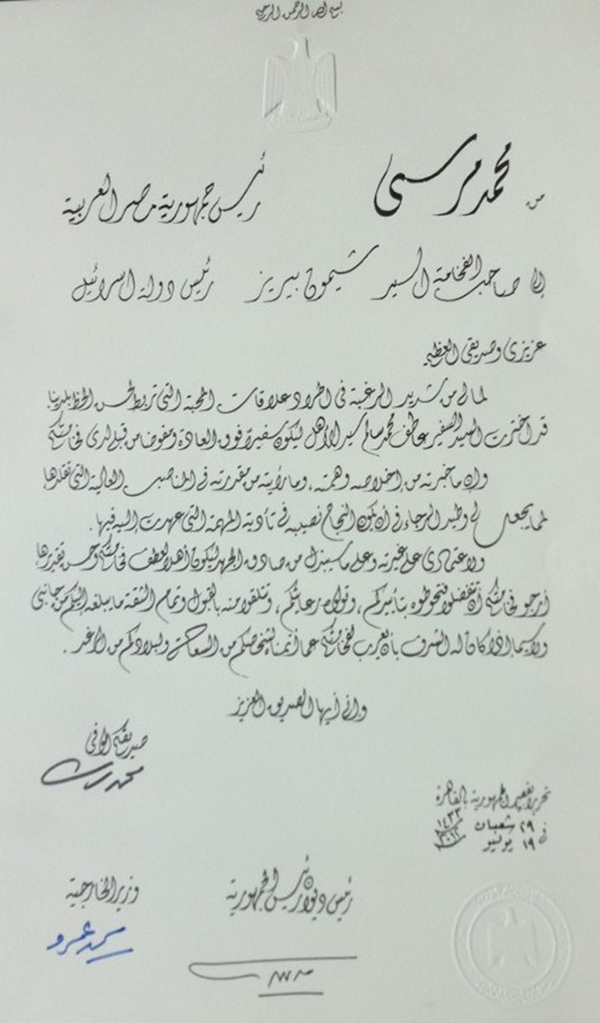 بسم الله الرحمن الرحيم
من محمد مرسى رئيس جمهورية مصر العربية
إلى صاحب الفخامة السيد شيمون بيريز رئيس دولة اسرائيل
عزيزى وصديقى العظيم
لما لى من شديد الرغبة فى اطراد علاقات المحبة التى تربط لحسن الحظ بلدينا
قد اخترت السيد السفير عاطف محمد سالم سيد الأهل ليكون سفيرا فوق العادة ومفوضا من قبلى لدى فخامتكم
وإن ما خبرته من إخلاصه وهمته، وما رأيته من مقدرته فى المناصب العالية التى تقلدها
مما يجعل لى وطيد الرجاء فى أن يكون النجاح نصيبه فى تأدية المهمة التى عهدت إليه فيها .
ولاعتمادى على غيرته وعلى ما سيبذل من صادق الجهد ليكون أهلا لعطف فخامتكم وحسن تقديرها
أرجو فخامتكم أن تتفضلوا فتحوطوه بتأييدكم، وتولوه رعايتكم، وتتلقوا منه بالقبول وتمام الثقة ما يبلغه إليكم من جانبى
ولا سيما إذا كان له الشرف بأن يعرب لفخامتكم عما أتمناه لشخصكم من السعادة ولبلادكم من الرغد .
وإنى أيها الصديق العزيز
صديقكم الوفى
محمد مرسى
تحريرا بقصر الجمهورية بالقاهرة
فى ٢٩ شعبان ١٤٣٣
١٩ يوليو ٢٠١٢
رئيس ديوان رئيس الجمهورية
وزير الخارجية
محمد عمرو